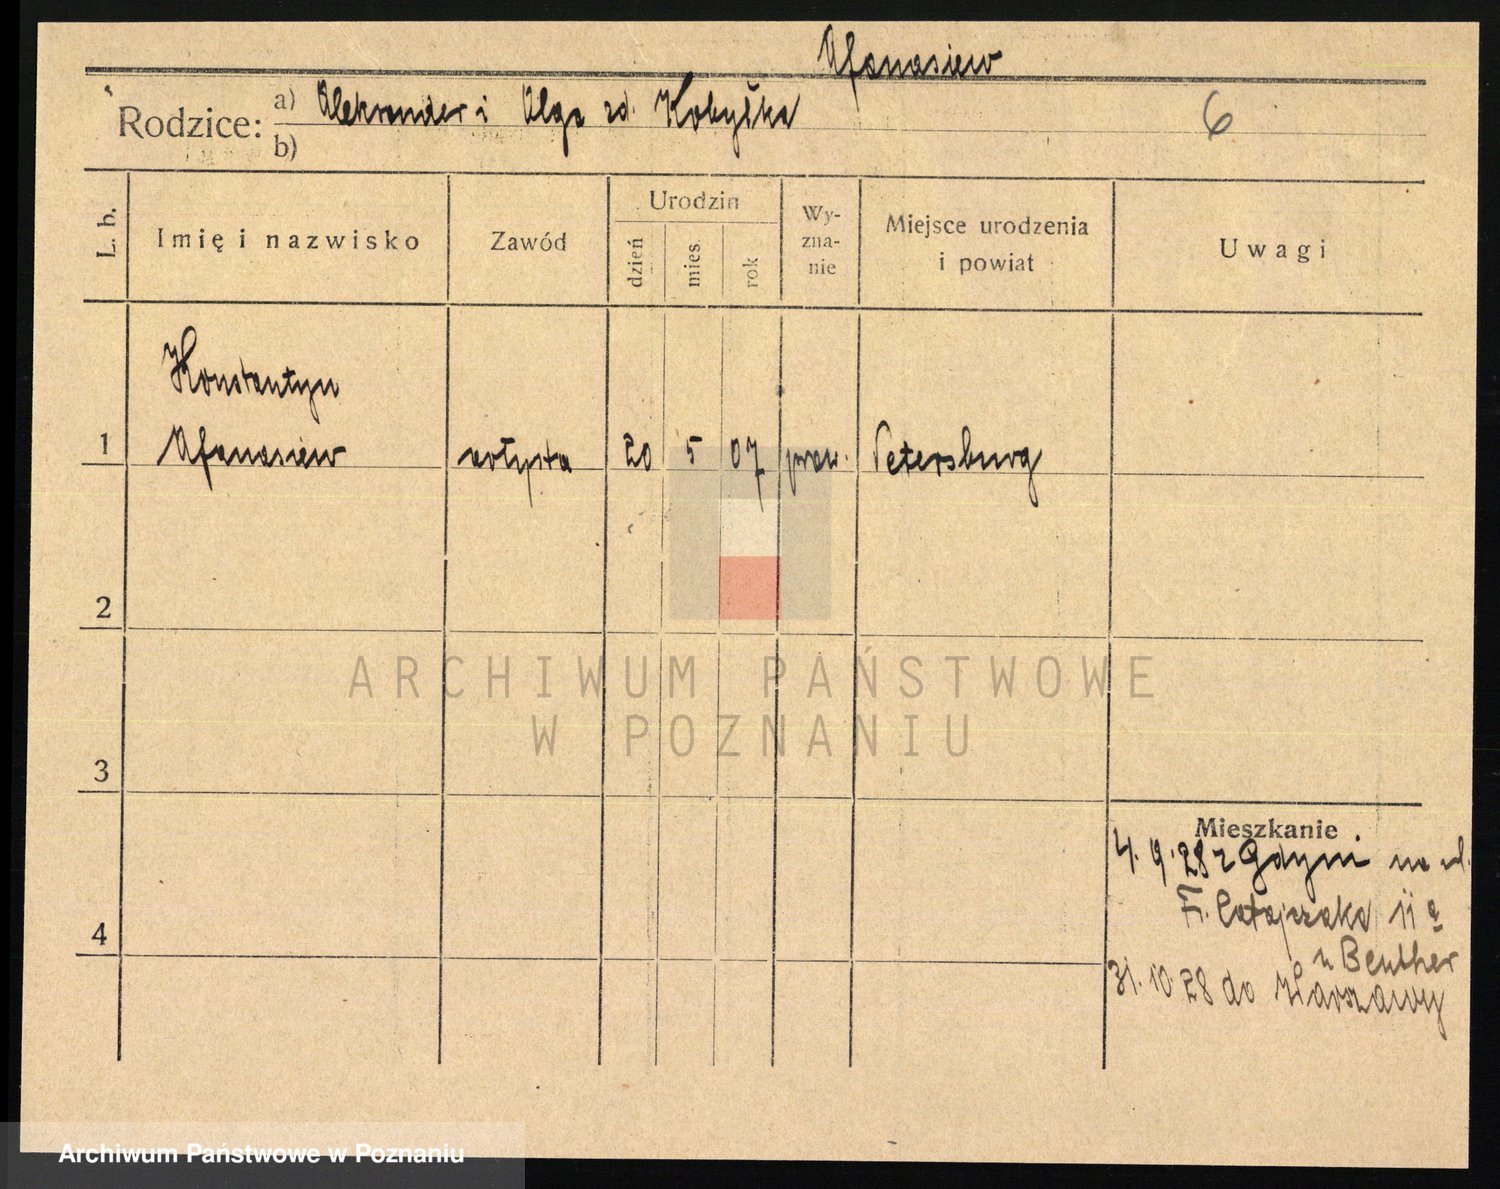 Afanasiew
Rodzice: a) Aleksander i Olga zd. Kobyłka
6
b)
L. b.
Imię i nazwisko
Zawód
Urodzin
dzień
mies.
rok
Wy-
zna-
nie
Miejsce urodzenia
i powiat
Uwagi
Konstantyn
1 Afanasiew artysta 20 5 07 praw. Petersburg
2
ARCHIWUM PAŃSTWOWE
W POZNANIU
3
Mieszkanie
4. 9. 28 z Gdyni na ul.
Fr. Ratajczaka 11 a
4
u Beuther
31. 10. 28 do Warszawy
Archiwum Państwowe w Poznaniu